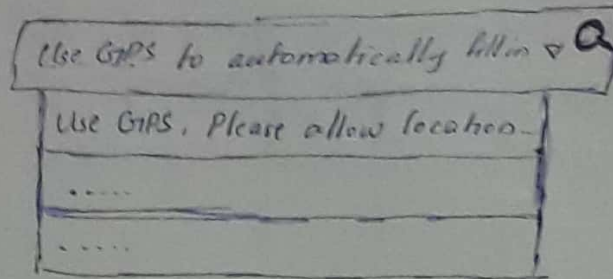 Use GPS to automatically fill in
Use GPS. Please allow location
.....
.....